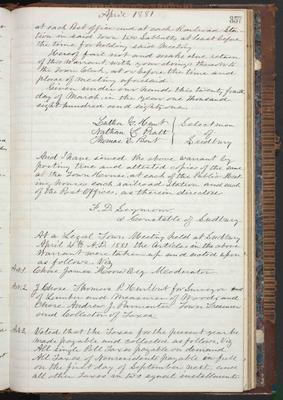 April 1881
357
at each Post office and at each Railroad Sta-
tion in said Town two Sabbaths at least before
the time for holding said Meeting
Hereof fail not and make due return
of this Warrant with your doings thereon to
the Town Clerk, at or before the time and
place of meeting aforesaid.
Given under our hands this twenty fourth
day of March in the year one thousand
eight hundred and eighty one.
Luther C. Hunt
Nathan L. Pratt
Thomas E. Bent
Selectmen
of
Sudbury
And I have served the above warrant by
posting true and attested copies of the same
at the Town House, at each of the Public Meet-
ing houses each railroad Station and each
of the Post Offices, as therein directed
F. D. Seymour
a Constable of Sudbury
At a Legal Town Meeting held at Sudbury
April 4th A.D. 1881 the Articles in the above
Warrant were taken up and acted upon
as follows, Viz
Art 1. Chose James Moore Esq. Moderator
Art 2. Chose Thomas P. Hurlbut for Surveyor
of Lumber and Measurer of Wood, and
Chose Andrew J. Parmenter Town Treasurer
and Collector of Taxes
Art 3. Voted that the Taxes for the present year be
made payable and collected as follows, Viz
All Single Poll Taxes payable on demand
All Taxes of Nonresidents payable in full
on the first day of September next, and
all other Taxes in two equal installments